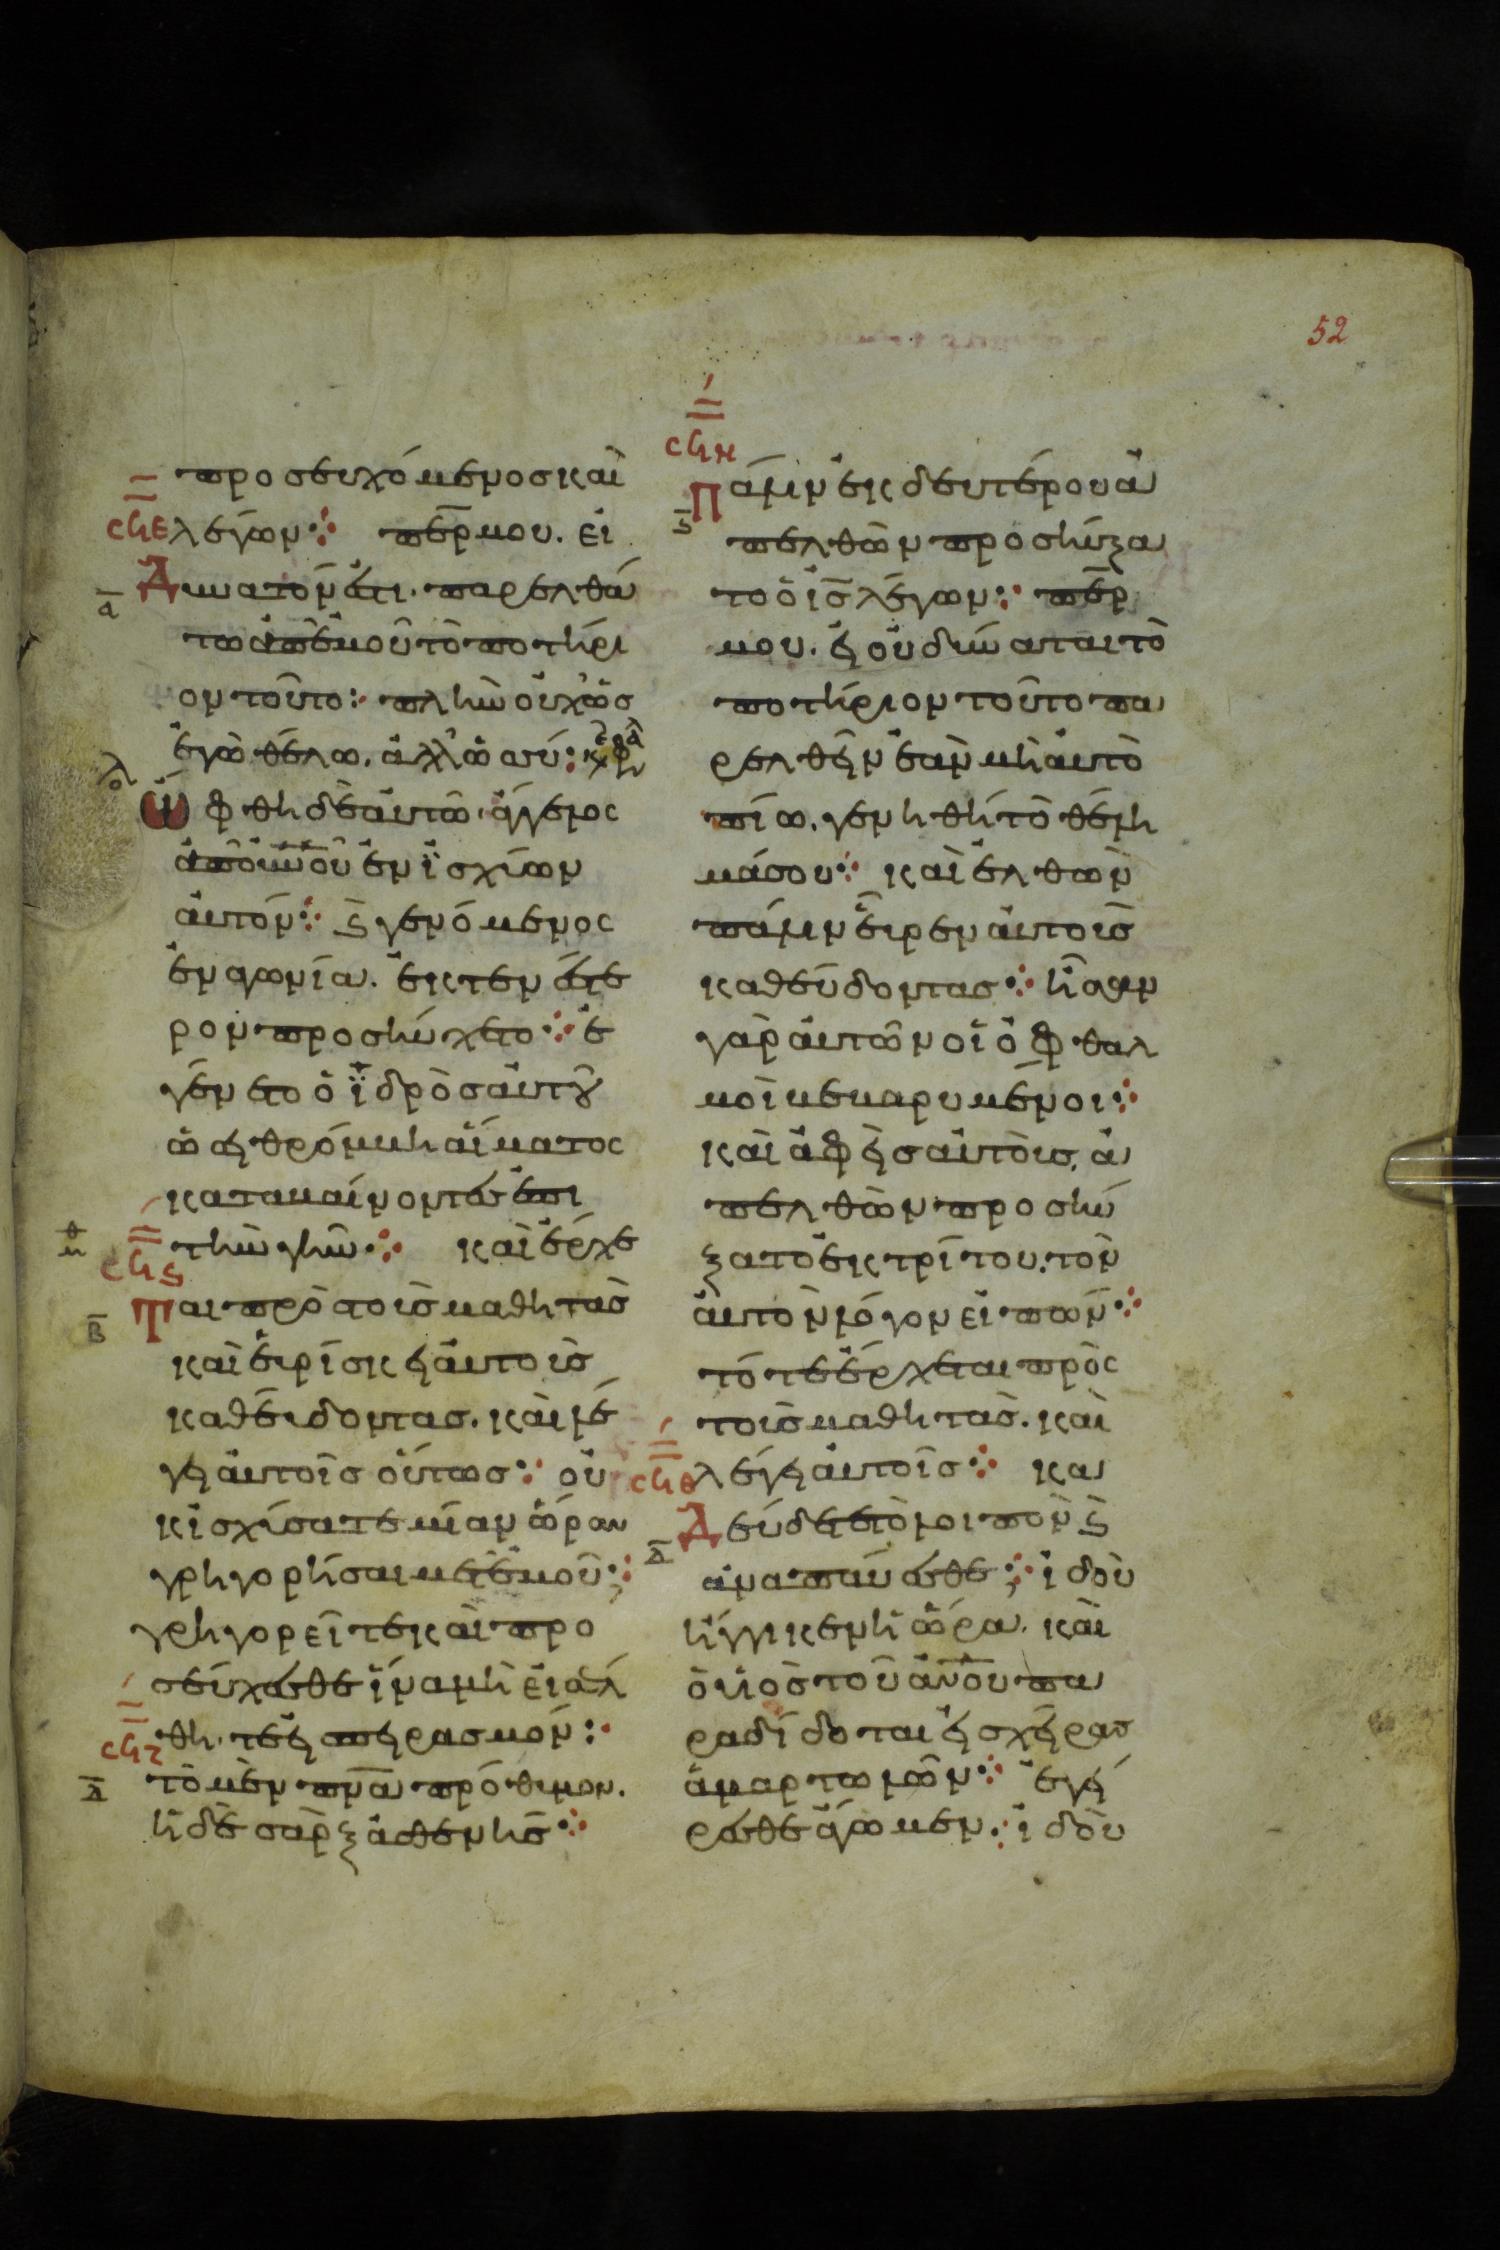 52
προσευχόμενοσ και
λεγων· περ μου. εἰ
Δυνατόν ἐστι. παρελθά
τω ἀπ ἐμοῦ τὸ ποτήρι
ον τοῦτο· πλὴν οὐχ ὡσ
ἐγὼ θέλω. ἀλλ ὡσ σύ·
Ὤφθη δὲ αὐτῶ ἄγγελος
ἀπὸ οὐνοῦ ἐνϊσχύων
αὐτόν· ϗ γενόμενος
ἐν αγωνία. ἐκτενέστε
ρον προσηύχετο· ἐ
γένετο ὁ ϊδρὸσ αὐτοῦ
ὡσει θρόμβη αἵματος
καταβαίνοντεσ ἐπι
τὴν γῆν· καὶ ἔρχε
Ται πρὸσ τοὺσ μαθητὰσ
καὶ εὑρίσκει αὐτοὺσ
καθεύδοντασ. καὶ λέ
γει αὐτοῖσ οὕτωσ· οὐ
κ ἰσχύσατε μίαν ὥραν
γρηγορήσαι μετ ἐμοῦ·
γρηγορεῖτε καὶ προ
σεύχεσθε ἵνα μὴ εἰσέλ
θητε εἰσ πειρασμόν·
τὸ μὲν πνα πρόθυμον.
ἡ δὲ σὰρξ ἀσθενήσ·
ση η
Πάλιν ἐκ δευτέρου ἀ
πελθὼν προσηύξα
το ὁ ισ λέγων· περ
μου. εἰ οὐ δύναται τὸ
ποτήριον τοῦτο πα
ρελθεῖν ἐὰν μὴ αὐτὸ
πίω. γενηθήτὸ θέλη
μάσου· καὶ ἐλθὼν
πάλιν εὗρεν αὐτοὺσ
καθεύδοντασ· ἦσαν
γὰρ αὐτῶν οἱ ὀφθαλ
μοὶ βεβαρυμένοι·
καὶ ἀφεὶσ αὐτοὺσ, ἀ
πελθὼν προσηύ
ξατο ἐκ τρίτου. τὸν
ἀυτὸν λόγον εἰπών·
τότε ἔρχεται πρὸς
τοὺσ μαθητὰσ. καὶ
λέγει αὐτοῖσ· Κα
θεύδετε τὸ λοιπὸν ϗ
ἀναπαύεσθε· ἰδοὺ
ἤγγικεν ἡ ὥρα. καὶ
ὁ ὑιὸσ τοῦ ἀνου πα
ραδίδοται εἰσ χεῖρασ
ἁμαρτωλῶν· ἐγεί
ρεσθε ἄγωμεν. ἰδοὺ